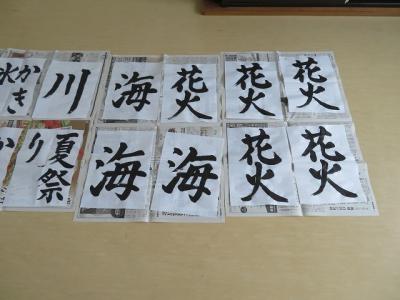 かき
氷
川
海
花火
花火
花火
夏祭
り
海
海
花火
花火